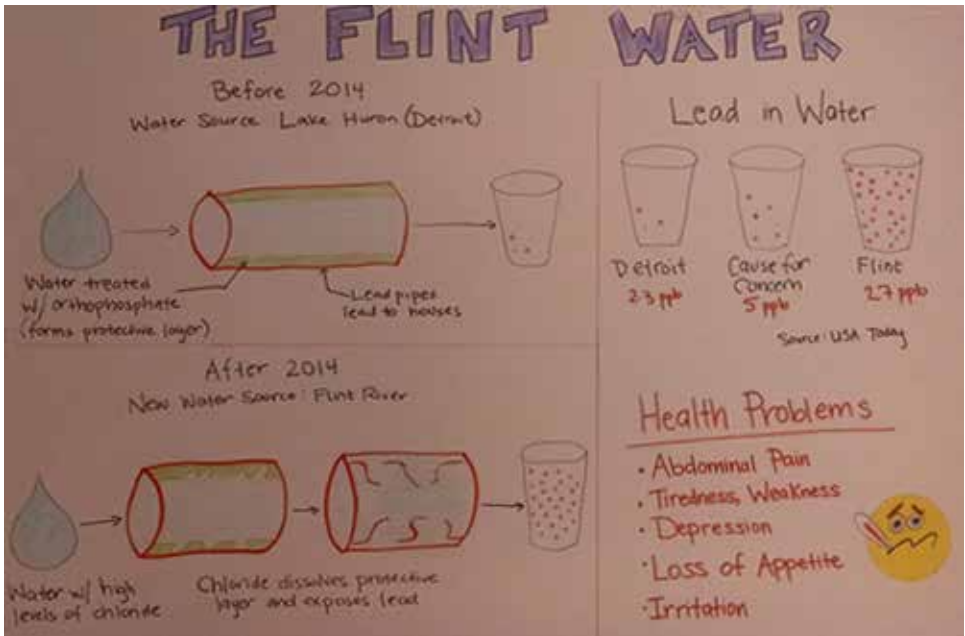 THE FLINT WATER
Before 2014
Water Source Lake Huron (Detroit)
Water treated
w/ orthophosphate
(forms protective layer)
Lead pipes
lead to houses
After 2014
New Water Source: Flint River
Water w/ high
levels of chloride
Chloride dissolves protective
layer and exposes lead
Lead in Water
Detroit
2.3 ppb
Cause for
Concern
5 ppb
Flint
27 ppb
Source: USA Today
Health Problems
• Abdominal Pain
• Tiredness, Weakness
• Depression
• Loss of Appetite
• Irritation